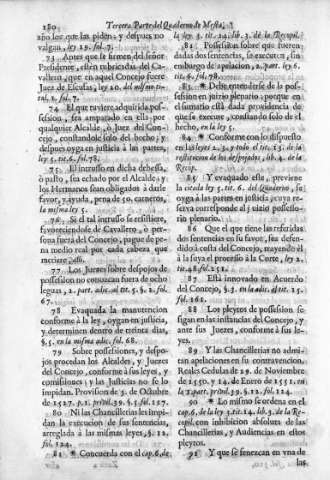 180 Tercera Parte del Quaderno de Mesta,
año los que las piden, y despues no
valgan, ley 19. fol. 7.
73 Autos que se firmen del señor
Presidente, estèn rubricados del Ca-
vallero, que en aquel Concejo fuere
Juez de Escusas, ley 20. del mismo ti-
tul. 2. fol. 7.
74 El que tuviere adquirida pos-
session, sea amparado en ella por
qualquier Alcalde, ò Juez del Con-
cejo, constandole solo del hecho; y
despues oyga en justicia à las partes,
ley 5. tit. 6. fol. 78.
75 El intruso en dicha dehesa,
ò pasto, sea echado por el Alcalde, y
los Hermanos sean obligados à darle
favor, y ayuda, pena de 50. carneros,
la misma ley 5.
76 Si el tal intruso se resistiere,
favoreciendole de Cavallero, ò per-
sona fuera del Concejo, pague de pe-
na medio real por cada cabeza que
metiere
77 Los Jueces sobre despojos de
possession no conozcan fuera de ocho
leguas, 2. part. adic. al tit. 5. §. 2. fol.
67.
78 Evaquada la manutencion
conforme à la ley, oygan en justicia,
y determinen dentro de treinta dias,
§. 5. en la misma adic. fol. 68.
79 Sobre possessiones, y despo-
jos procedan los Alcaldes, y Jueces
del Concejo, conforme à sus leyes, y
comissiones; y las Justicias no se lo
impidan. Provision de 5. de Octubre
de 1527. p. 1. privil. 39. §. 5. fol. 127.
80 Ni las Chancillerias les impi-
dan la execucion de sus sentencias,
arreglada à las mismas leyes, §. 12.
fol. 124.
81 Concuerda con el cap. 6. de
la ley 4. tit. 14. lib. 3. de la Recopil.
82 Possession sobre que fueren
dadas dos sentencias, se execute, sin
embargo de apelacion, 2. part. ley 6.
tit. 6. fol. 78.
83 Debe entenderse de la pos-
session en juizio plenario: porque en
el sumario està dada providencia de
que se execute, constando solo de el
hecho, en la ley 5.
84 Conforme con lo dispuesto
en las leyes 2. 3. y todo el tit. 13. de la
restitucion de los despojados, lib. 4. de la
Recop.
85 Y evaquado esto, previene
la citada ley 5. tit. 6. del Quaderno, se
oyga à las partes en justicia; cuya re-
serva corresponde al juizio possesso-
rio plenario.
86 Que el que tiene las referidas
dos sentencias en su favor, sea defen-
dido à costa del Concejo, trayendo èl
à la suya el processo à la Corte, ley 2.
tit. 48 fol. 251.
87 Està innovado en Acuerdo
del Concejo, §. 5. en la adic. al tit. 15.
fol. 161.
88 Los pleytos de possession se
sigan en las instancias del Concejo, y
ante sus Jueces, conforme à sus le-
yes.
89 Y las Chancillerias no admi-
tan apelaciones en su contravencion.
Reales Cedulas de 29. de Noviembre
de 1550. y 14. de Enero de 1551. en
la 1. part. privil. 39. §. 12. fol. 124.
90 Lo mismo se ordena en el
cap. 6. de la ley 4. tit. 14. lib. 3. de la Re-
copil. con inhibicion absoluta de las
Chancillerias, y Audiencias en estos
pleytos.
91 Y que se fenezcan en vna de
las